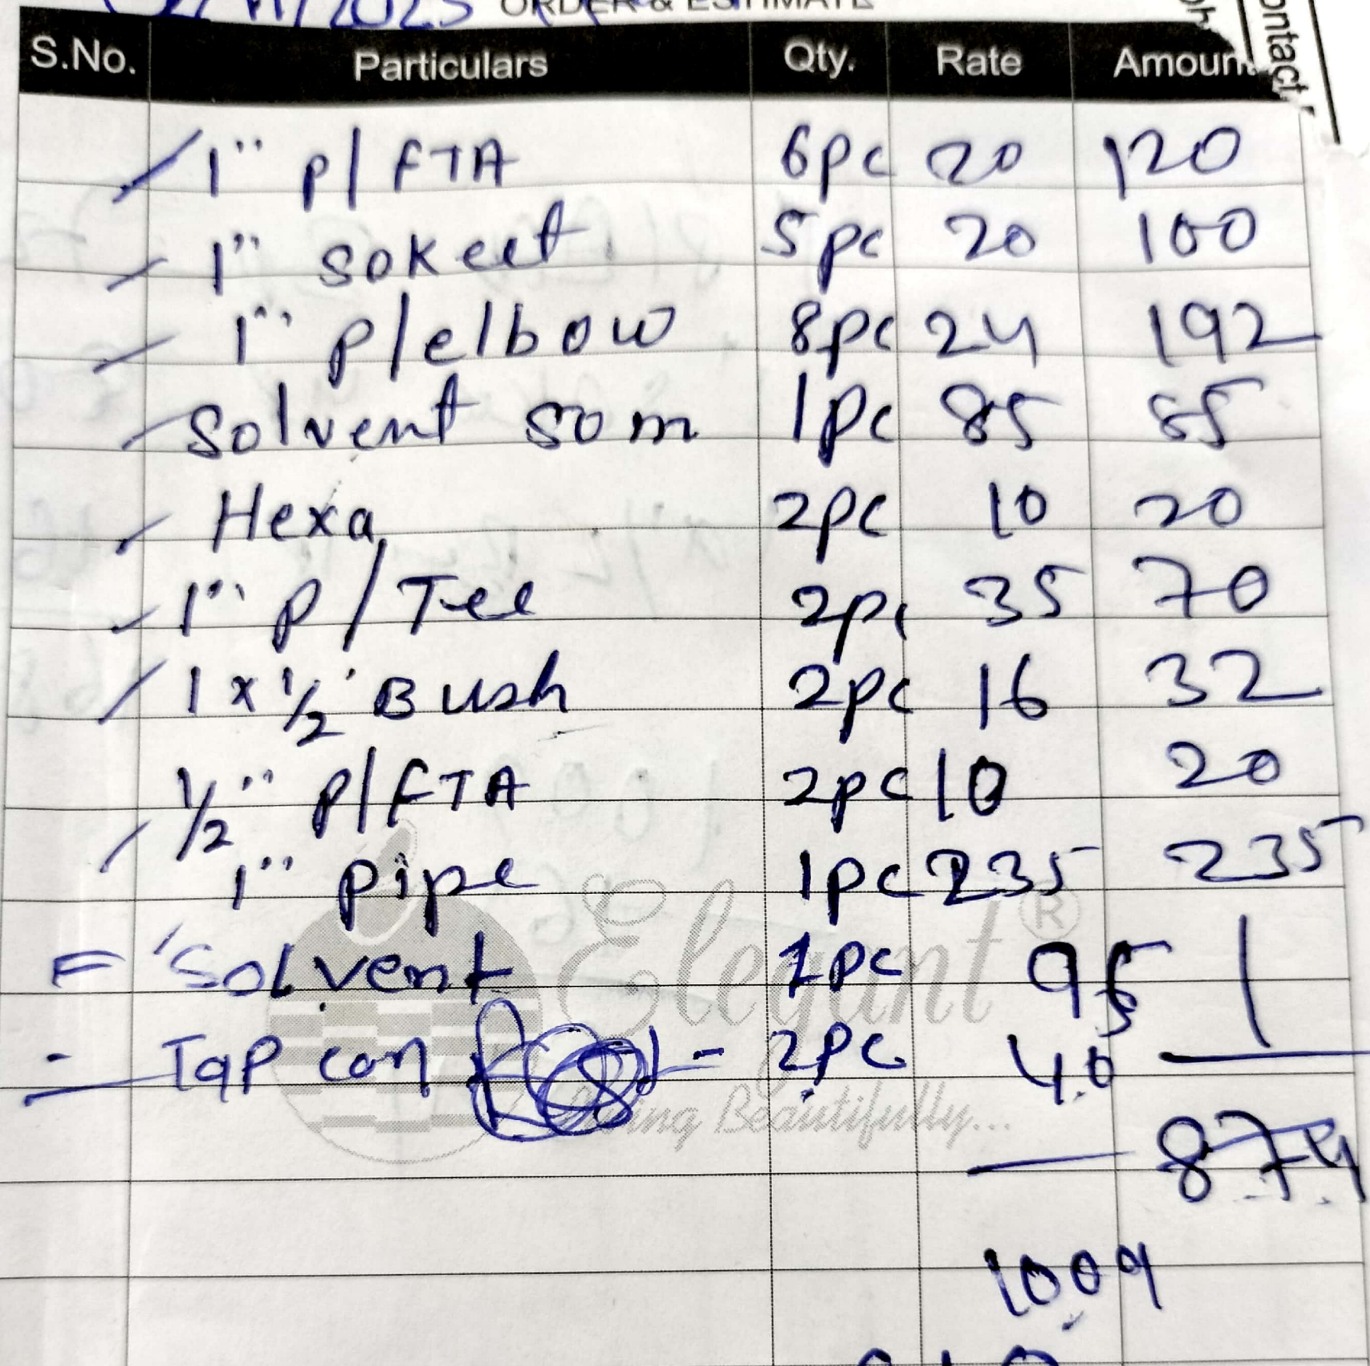 /11/2025 ORDER & ESTIMATE
ontact
S.No. Particulars Qty. Rate Amoun
1" P/FTA 6pc 20 120
1" Sokeet 5pc 20 100
1" p/elbow 8pc 24 192
Solvent 50 m 1pc 85 85
Hexa 2pc 10 20
1" P/Tee 2pc 35 70
1 x 1/2" Bush 2pc 16 32
1/2" P/FTA 2pc 10 20
1" pipe 1pc 235 235
Solvent 1pc 95
Tap con 2pc 40
Elegant®
Beautifully...
874
1009